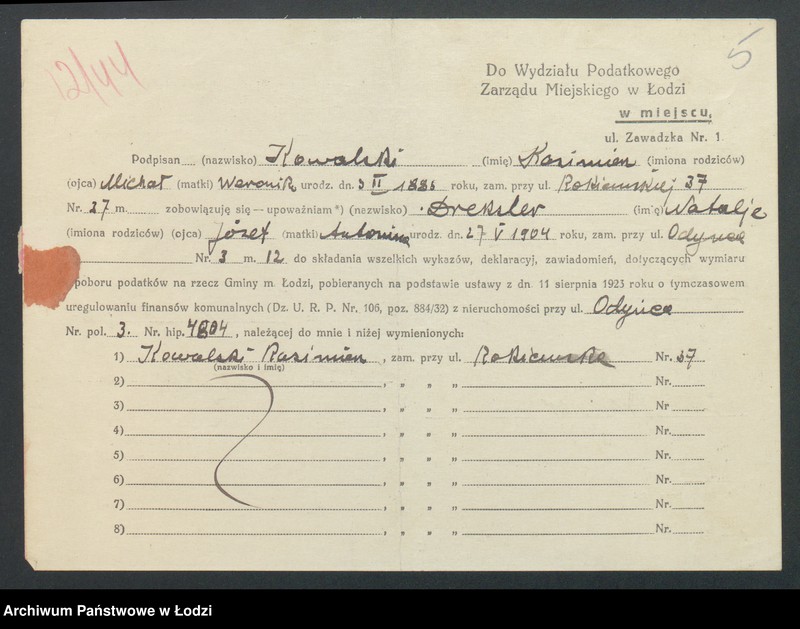 12/44
5
Do Wydziału Podatkowego
Zarządu Miejskiego w Łodzi
w miejscu,
ul. Zawadzka Nr. 1
Podpisan (nazwisko) Kowalski (imię) Kazimierz (imiona rodziców)
(ojca) Michał (matki) Weronik urodz. dn. 3 II 1886 roku, zam. przy ul. Rokicińskiej 37
Nr. 37 m. zobowiązuję się — upoważniam *) (nazwisko) Dreksler (imię) Natalje
(imiona rodziców) (ojca) Józef (matki) Antonina urodz. dn. 27 V 1904 roku, zam. przy ul. Odyńca
Nr. 3 m. 12 do składania wszelkich wykazów, deklaracyj, zawiadomień, dotyczących wymiaru
poboru podatków na rzecz Gminy m. Łodzi, pobieranych na podstawie ustawy z dn. 11 sierpnia 1923 roku o tymczasowem
uregulowaniu finansów komunalnych (Dz. U. R. P. Nr. 106, poz. 884/32) z nieruchomości przy ul. Odyńca
Nr. pol. 3. Nr. hip. 4804, należącej do mnie i niżej wymienionych:
1) Kowalski Kazimierz, zam. przy ul. Rokicińska Nr. 37
(nazwisko i imię)
2) , „ „ „ Nr.
3) , „ „ „ Nr
4) , „ „ „ Nr.
5) , „ „ „ Nr.
6) , „ „ „ Nr.
7) , „ „ „ Nr.
8) , „ „ „ Nr.
Archiwum Państwowe w Łodzi